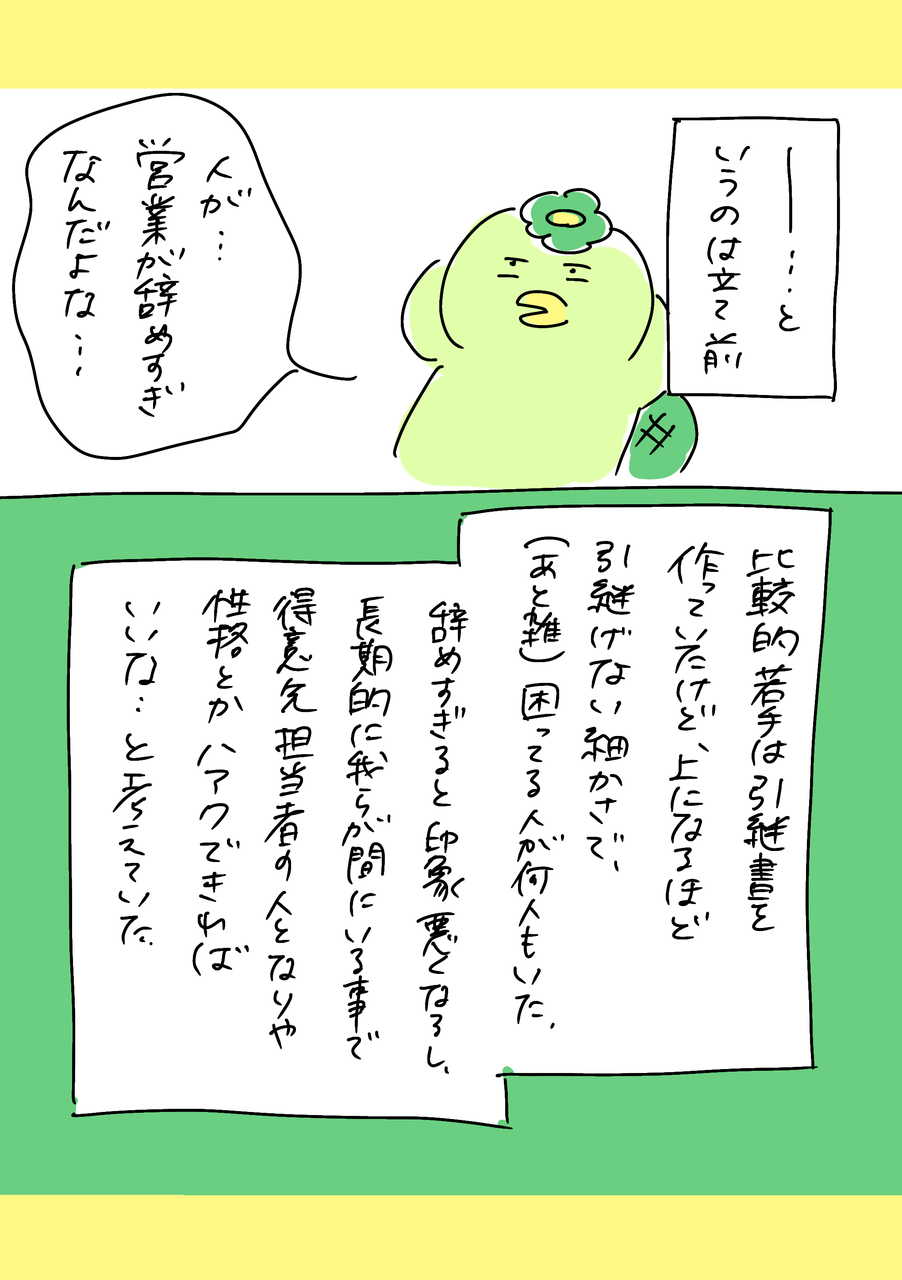 ――…と
いうのは立て前
人が…
営業が辞めすぎ
なんだよな…
比較的若手は引継書を
作っていたけど、上になるほど
引継げない細かさで、
(あと雑)困ってる人が何人もいた。
辞めすぎると印象悪くなるし、
長期的に我らが間にいる事で
得意先担当者の人となりや
性格とかハアクできれば
いいな…と考えていた。